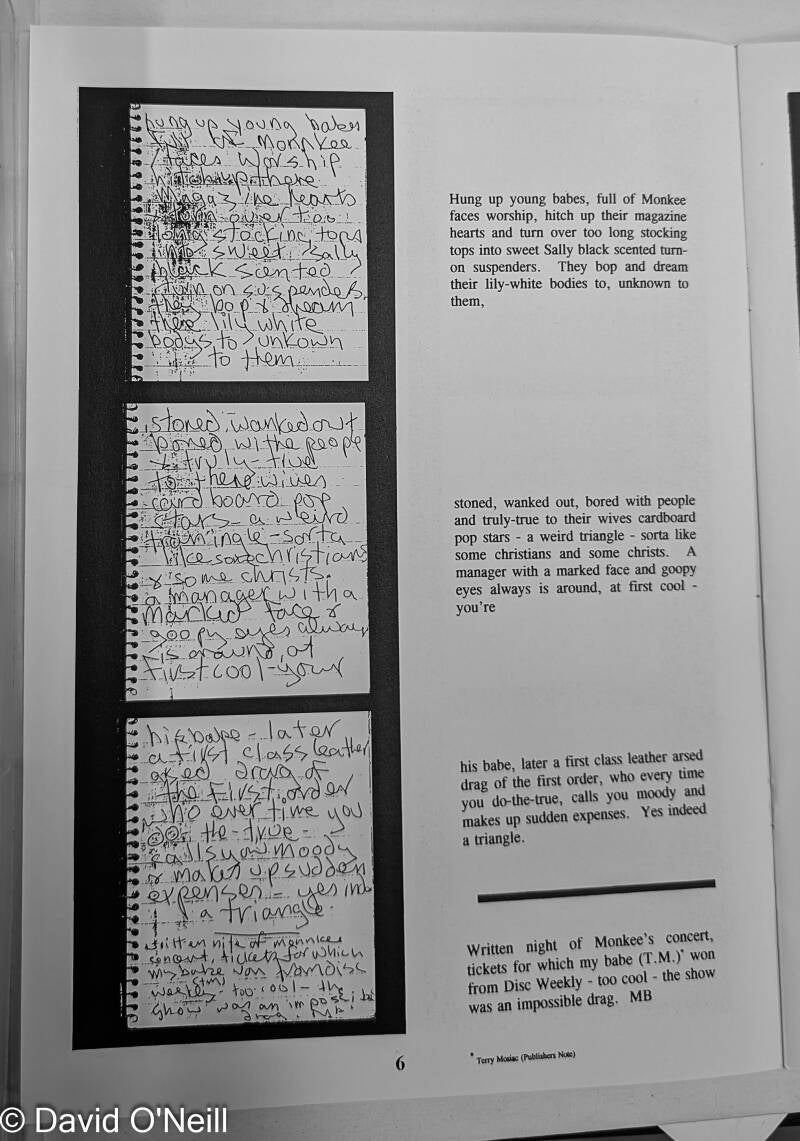 hung up young babes
full of Monnkee
/faces worship
hitch up there
magazine hearts
& turn over too
long stocking tops
into sweet, sally
black scented
turn on suspenders.
they bop & dream
there lily white
bodys to, unkown
to them
stoned, wanked out
bored withe people
& truly-true
to there wives
card board pop
stars - a weird
triangle - sorta
like some christians
& some christs.
a manager with a
marked face &
goopy eyes always
is around, at
first cool - your
his babe - later
a first class leather
arsed drag of
the first, order
who ever time you
do - the - true -
calls you moody
& makes up sudden
expenses - yes ind
a triangle.
written nite of monnkee
concert, tickets for which
my babe won from diss
weekly (TM) - too cool - the
show was an impossible
drag. MB.
Hung up young babes, full of Monkee
faces worship, hitch up their magazine
hearts and turn over too long stocking
tops into sweet Sally black scented turn-
on suspenders. They bop and dream
their lily-white bodies to, unknown to
them,
stoned, wanked out, bored with people
and truly-true to their wives cardboard
pop stars - a weird triangle - sorta like
some christians and some christs. A
manager with a marked face and goopy
eyes always is around, at first cool -
you're
his babe, later a first class leather arsed
drag of the first order, who every time
you do-the-true, calls you moody and
makes up sudden expenses. Yes indeed
a triangle.
Written night of Monkee's concert,
tickets for which my babe (T.M.)* won
from Disc Weekly - too cool - the show
was an impossible drag. MB
* Terry Mosiac (Publishers Note)
6
© David O'Neill